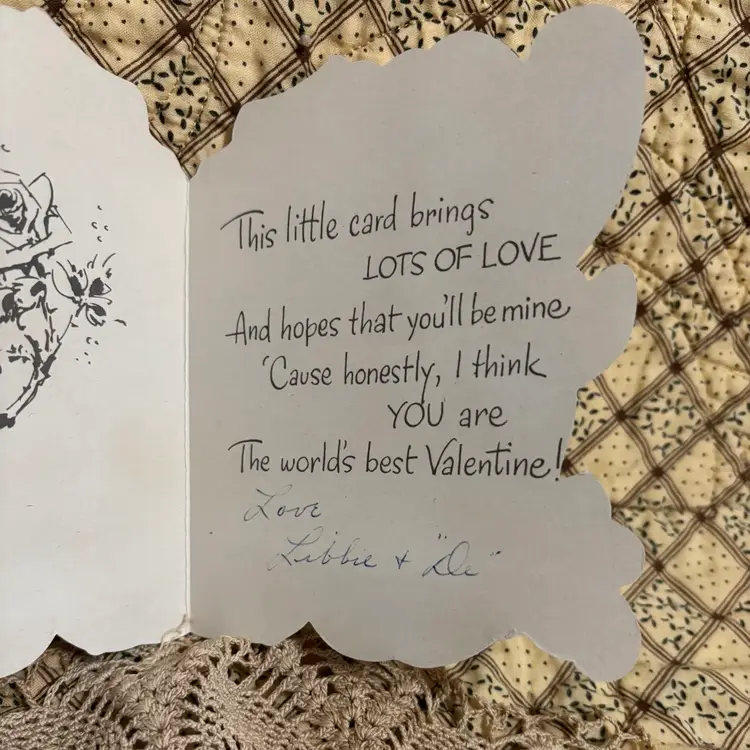 This little card brings
LOTS OF LOVE
And hopes that you'll be mine
'Cause honestly, I think
YOU are
The world's best Valentine!
Love
Libbie + "De"